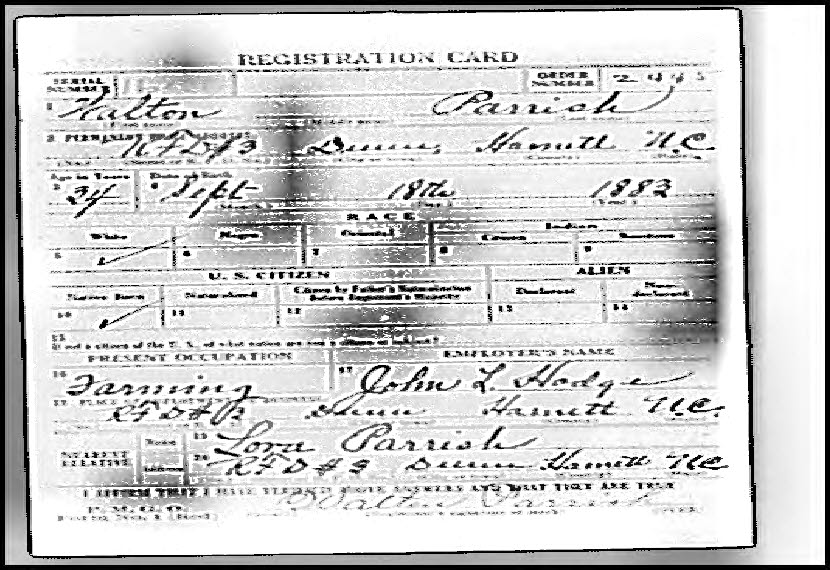 REGISTRATION CARD
SERIAL NUMBER ORDER NUMBER
1 Walton Parrish
2 PERMANENT HOME ADDRESS
RFD #3 Dunn, Harnett N.C.
Age in Years Date of Birth
3 34 4 Sept 18th 1883
RACE
White Negro Oriental Indian
Citizen Noncitizen
5 ✓ 6 7 8 9
U. S. CITIZEN ALIEN
Native Born Naturalized Citizen by Father's Naturalization Before Registrant's Majority Declarant Non-declarant
10 ✓ 11 12 13 14
15
If not a citizen of the U. S., of what nation are you a citizen or subject?
PRESENT OCCUPATION EMPLOYER'S NAME
16 Farming 17 John L. Hodge
RFD #3 Dunn Harnett N.C.
NEAREST RELATIVE
Name 19 Lora Parrish
Address 20 RFD #3 Dunn Harnett NC
I AFFIRM THAT I HAVE VERIFIED ABOVE ANSWERS AND THAT THEY ARE TRUE
P. M. G. O.
Walton Parrish